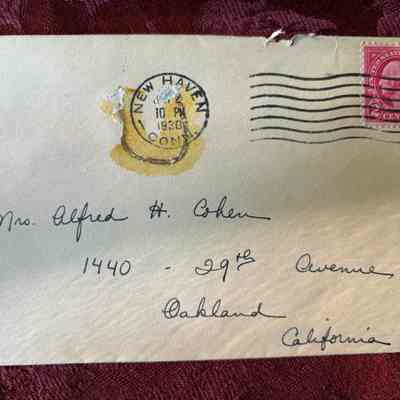 NEW HAVEN
10 PM
1930
CONN.
Mrs. Alfred H. Cohen
1440 - 29th Avenue
Oakland
California